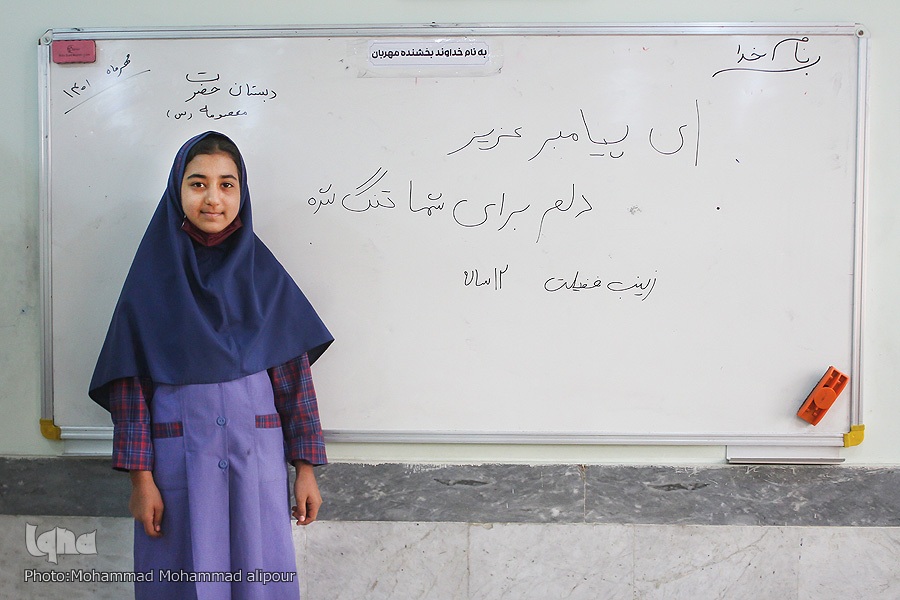 به نام خداوند بخشنده مهربان
بنام خدا
مهرماه ۱۴۰۱
دبستان حضرت
معصومه (س)
ای پیامبر عزیز
دلم برای شما تنگ شده
زینب فضیلت ۱۲ ساله
Iqna
Photo:Mohammad Mohammad alipour